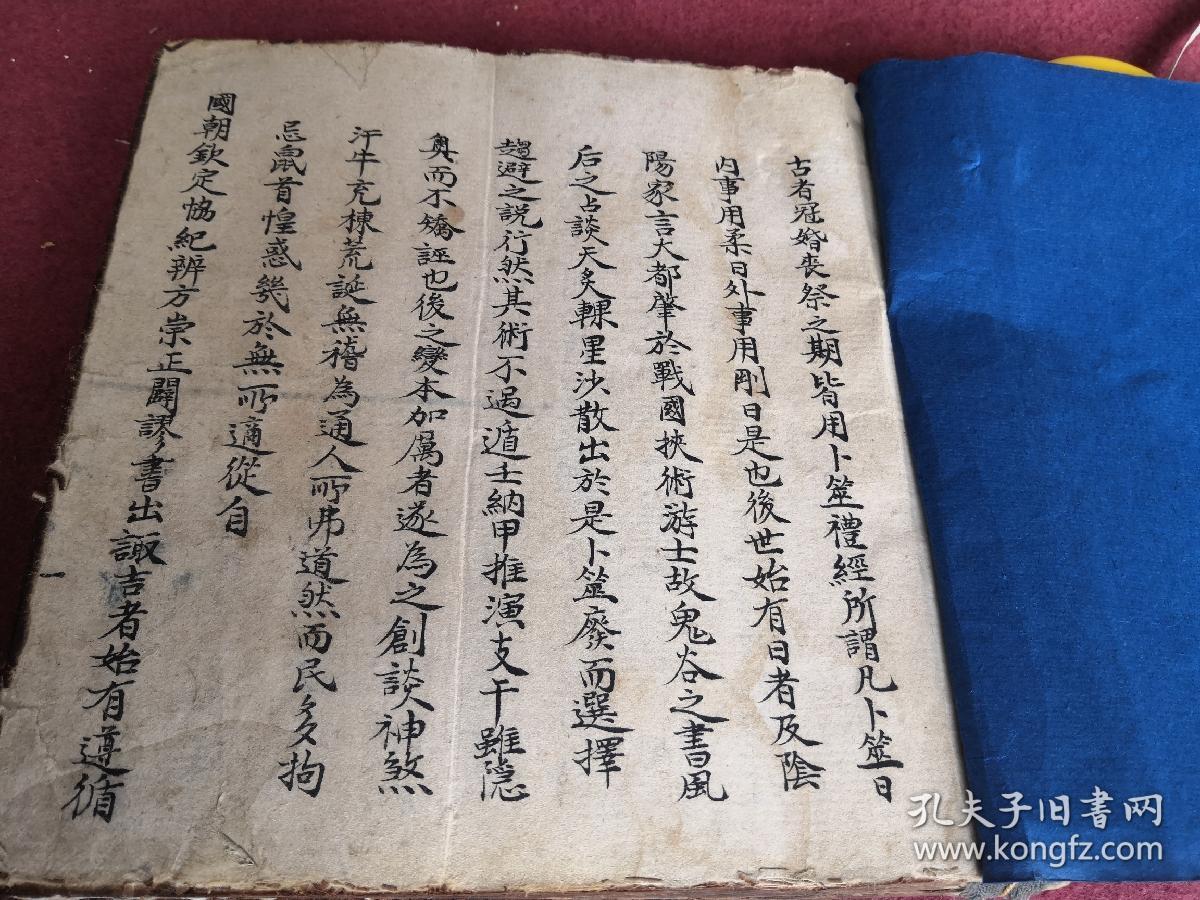 古者冠婚喪祭之期皆用卜筮禮經所謂凡卜筮日
内事用柔日外事用剛日是也後世始有日者及陰
陽家言大都肇於戰國挾術游士故鬼谷之書風
后之占談天炙輠星沙散出於是卜筮廢而選擇
趨避之説行然其術不過遁壬納甲推演支干雖隐
奥而不矯誣也後之變本加厲者遂為之創談神煞
汗牛充棟荒誕無稽為通人所弗道然而民多拘
忌鼠首惶惑幾於無所適從自
國朝欽定恊紀辨方崇正闢謬書出諏吉者始有遵循
孔夫子旧书网
www.kongfz.com